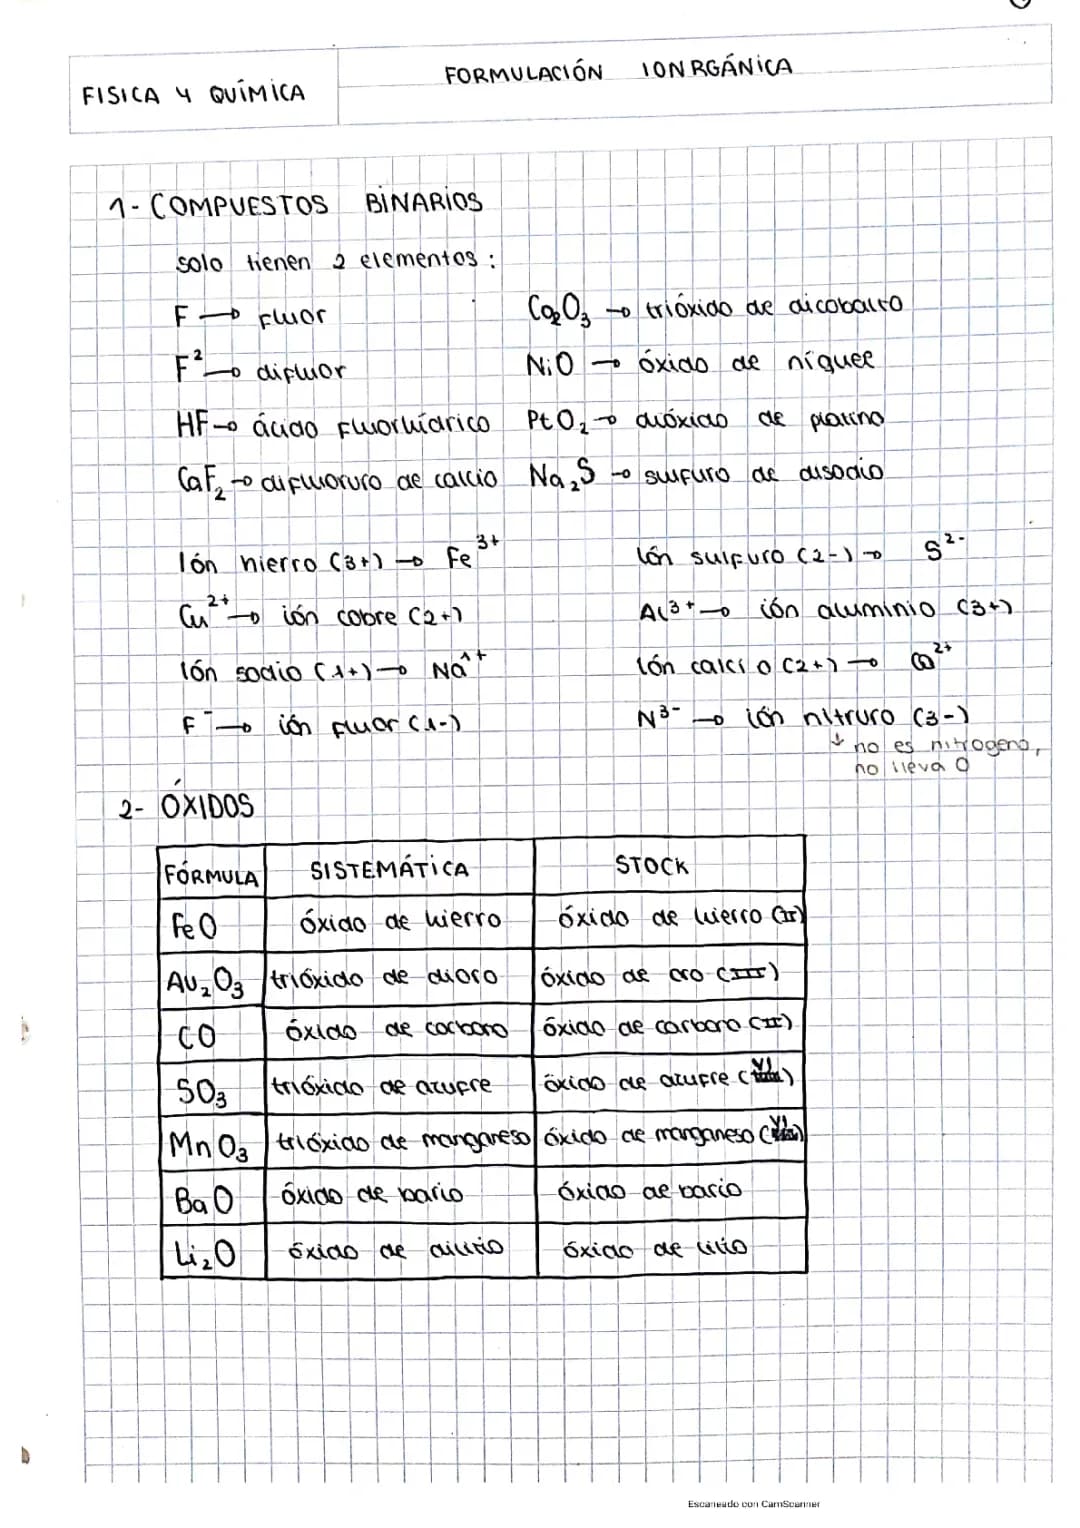 FISICA Y QUÍMICA
FORMULACIÓN IONRGÁNICA
1- COMPUESTOS BINARIOS
solo tienen 2 elementos:
F → Fluor
Co₂O₃ → trióxido de dicobalto
F² → difluor
NiO → óxido de níquel
HF → ácido fluorhídrico
PtO₂ → dióxido de platino
CaF₂ → difluoruro de calcio
Na₂S → sulfuro de disodio
Ión hierro (3+) → Fe³⁺
Ión sulfuro (2-) → S²⁻
Cu²⁺ → ión cobre (2+)
Al³⁺ → ión aluminio (3+)
Ión sodio (1+) → Na¹⁺
Ión calcio (2+) → Ca²⁺
F⁻ → ión fluor (1-)
N³⁻ → ión nitruro (3-)
↓ no es nitrogeno,
no lleva O
2- ÓXIDOS
FÓRMULA SISTEMÁTICA STOCK
FeO óxido de hierro óxido de hierro (II)
Au₂O₃ trióxido de dioro óxido de oro (III)
CO óxido de carbono óxido de carbono (II)
SO₃ trióxido de azufre óxido de azufre (VI)
MnO₃ trióxido de manganeso óxido de manganeso (VI)
BaO óxido de bario óxido de bario
Li₂O óxido de dilitio óxido de litio
Escaneado con CamScanner